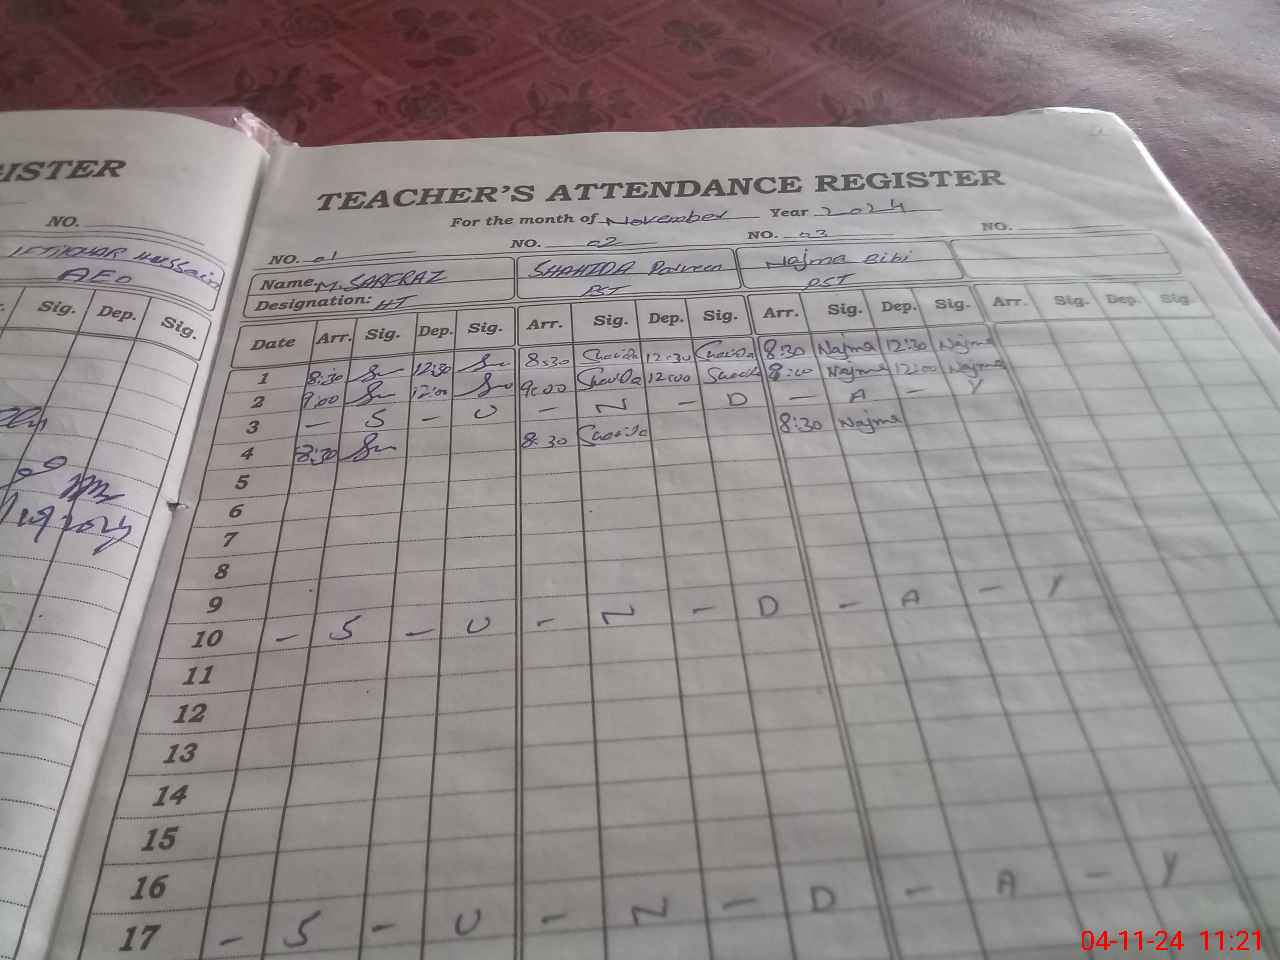 GISTER
NO.
IFTIKHAR Hussain
AEO
Sig. Dep. Sig.
TEACHER'S ATTENDANCE REGISTER
For the month of November Year 2024
NO. 01 NO. 02 NO. 03 NO.
Name: M. SARFRAZ SHAHIDA Parveen Najma Bibi
Designation: HT PST PST
Date Arr. Sig. Dep. Sig. Arr. Sig. Dep. Sig. Arr. Sig. Dep. Sig. Arr. Sig. Dep. Sig.
1 8:30 12:30 8:30 12:30 8:30 Najma 12:30 Najma
2 9:00 12:00 9:00 12:00 Najma 12:00 Najma
3 - S - U - N - D - A - Y
4 8:30 8:30 8:30 Najma
5
6
7
8
9
10 - S - U - N - D - A - Y
11
12
13
14
15
16
17 - S - U - N - D - A - Y
04-11-24 11:21